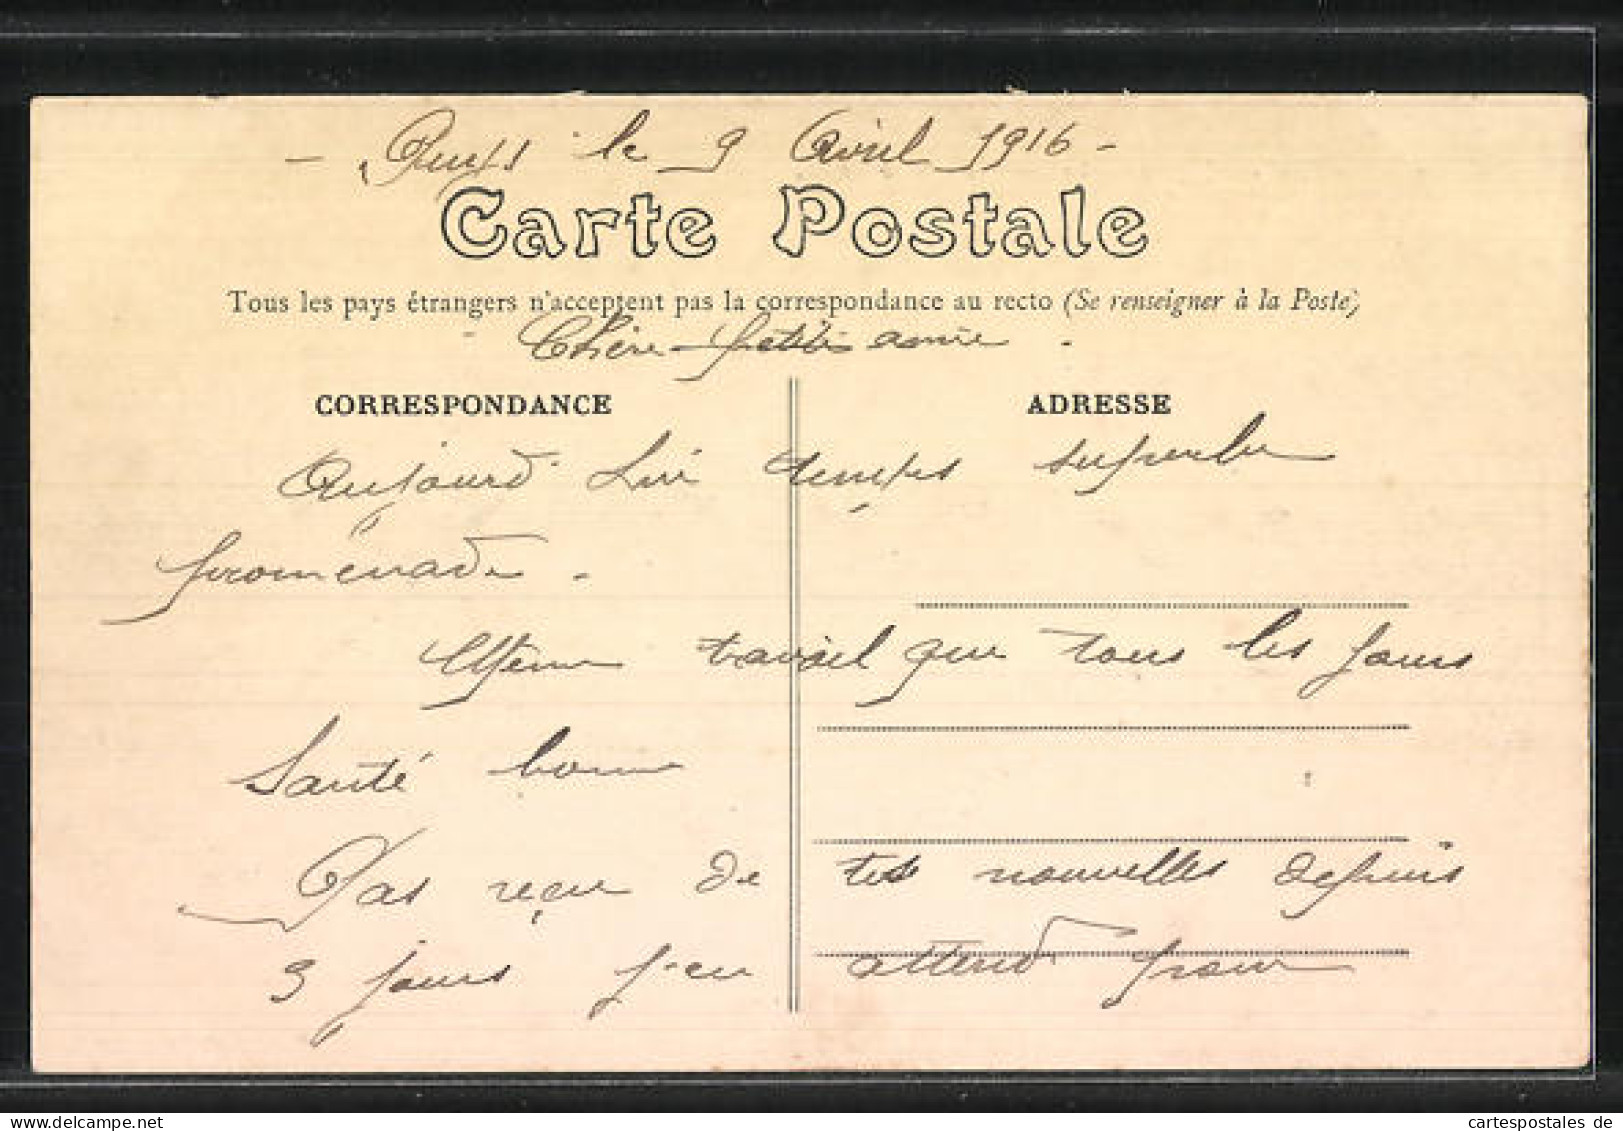 le 9 Avril 1916 -
Carte Postale
Tous les pays étrangers n'acceptent pas la correspondance au recto (Se renseigner à la Poste)
Chère petite amie
CORRESPONDANCE
ADRESSE
Aujourd'hui temps superbe
promenade.
Même travail que tous les jours
Santé bonne
Pas reçu de tes nouvelles depuis
3 jours j'en attend pour
cartespostales de